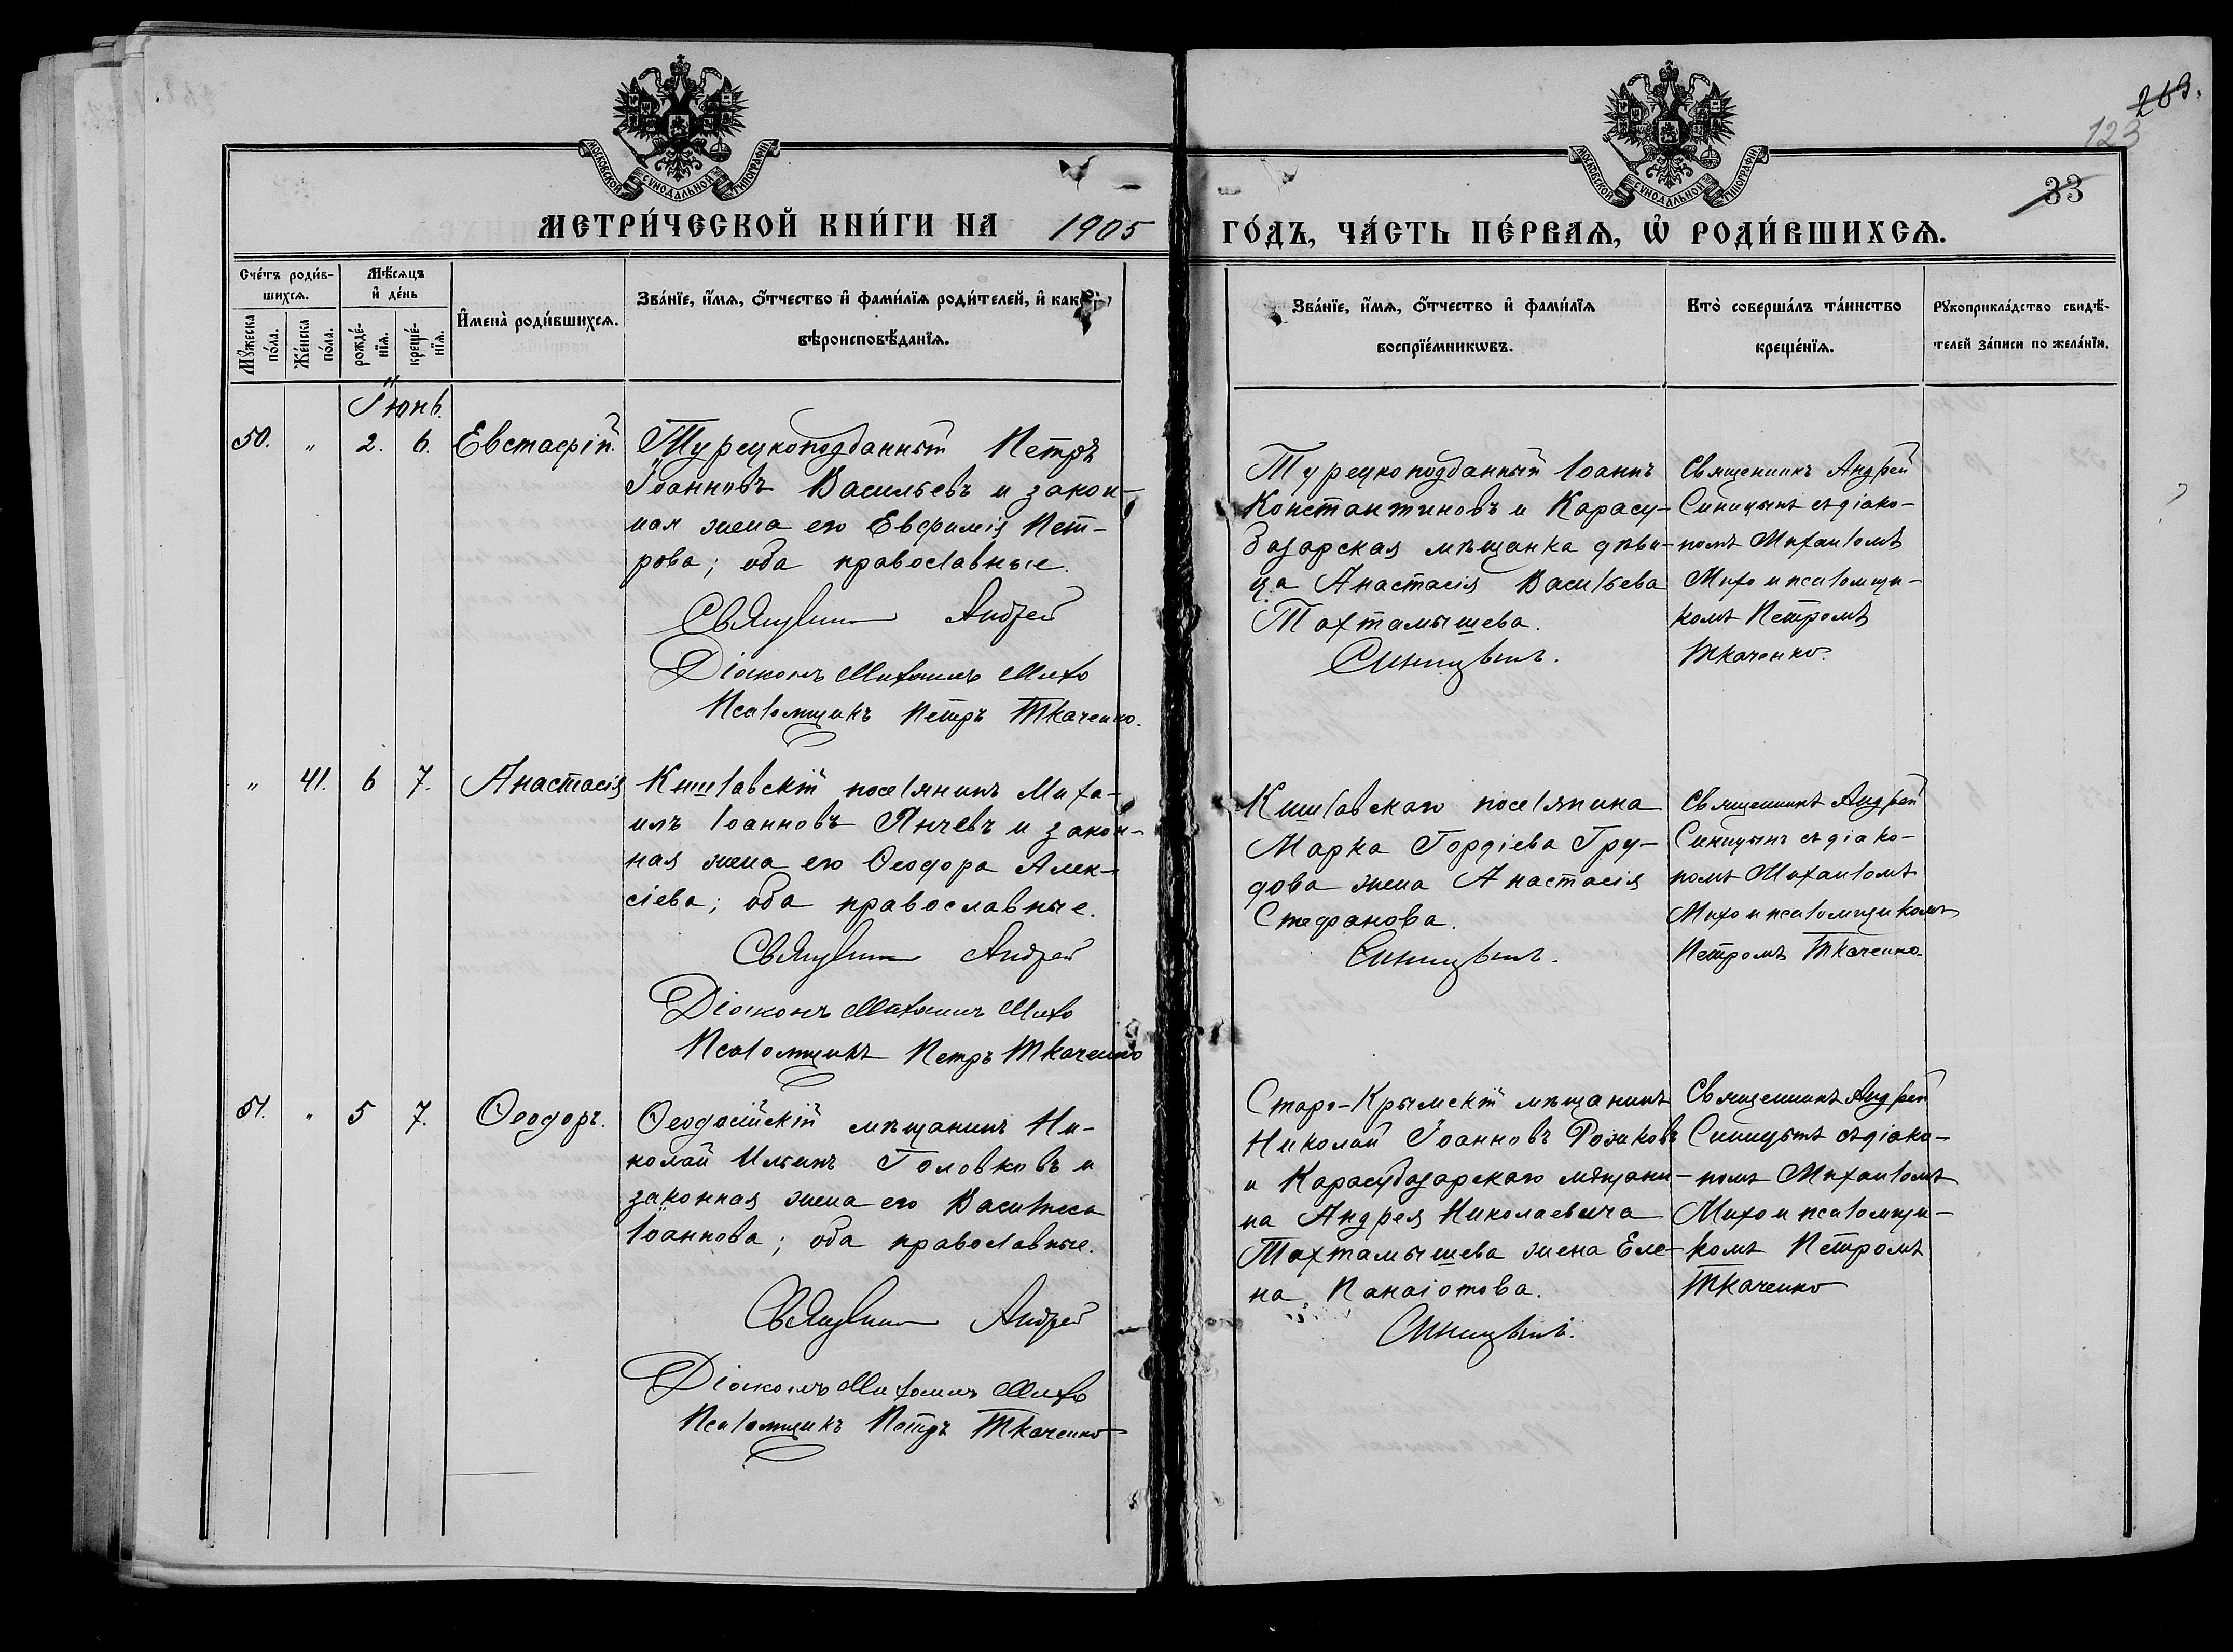 269.
123
33
МОСКОВСКОЙ СѴНОДАЛЬНОЙ ТИПОГРАФІИ
МОСКОВСКОЙ СѴНОДАЛЬНОЙ ТИПОГРАФІИ
МЕТРИ́ЧЕСКОЙ КНИ́ГИ НА 1905 ГО́ДЪ, ЧА́СТЬ ПЕ́РВАѦ, Ѡ҆ РОДИ́ВШИХСѦ.
Сче́тъ роди́в-
шихсѧ.
Мѣ́сѧцъ
и҆ де́нь
Мꙋ́жеска
по́ла.
Же́нска
по́ла.
рожде́-
нїѧ.
креще́-
нїѧ.
И҆мена̀ роди́вшихсѧ.
Зва́нїе, и҆́мѧ, ѻ҆́тчество и҆ фами́лїѧ роди́телей, и҆ как
вѣроисповѣ́данїѧ.
Зва́нїе, и҆́мѧ, ѻ҆́тчество и҆ фами́лїѧ
воспрїе́мникѡвъ.
Кто̀ соверша́лъ та́инство
креще́нїѧ.
Рꙋкоприкла́дство свидѣ́-
телей за́писи по жела́нїю.
Іюнь.
50. " 2. 6. Евстафій.
Турецкоподданный Петръ
Іоанновъ Васильевъ и закон-
ная жена его Евфимія Пет-
рова; оба православные.
Священникъ Андрей
Діаконъ Михаилъ Михо
Псаломщикъ Петръ Ткаченко.
Турецкоподданный Іоаннъ
Константиновъ и Карасу-
базарская мѣщанка дѣви-
ца Анастасія Васильева
Тохтамышева.
Синицынъ.
Священникъ Андрей
Синицынъ съ діако-
номъ Михаиломъ
Михо и псаломщи-
комъ Петромъ
Ткаченко.
" 41. 6 7. Анастасія
Кишлавскій поселянинъ Миха-
илъ Іоанновъ Янчевъ и закон-
ная жена его Ѳеодора Алек-
сіева; оба православные.
Священникъ Андрей
Діаконъ Михаилъ Михо
Псаломщикъ Петръ Ткаченко
Кишлавскаго поселянина
Марка Гордіева Гру-
дова жена Анастасія
Стефанова.
Синицынъ.
Священникъ Андрей
Синицынъ съ діако-
номъ Михаиломъ
Михо и псаломщикомъ
Петромъ Ткаченко.
51. " 5 7. Ѳеодоръ.
Ѳеодосійскій мѣщанинъ Ни-
колай Ильинъ Головковъ и
законная жена его Василиса
Іоаннова; оба православные.
Священникъ Андрей
Діаконъ Михаилъ Михо
Псаломщикъ Петръ Ткаченко
Старо-Крымскій мѣщанинъ
Николай Іоанновъ
и Карасубазарскаго мѣщани-
на Андрея Николаевича
Тохтамышева жена Еле-
на Панаіотова.
Синицынъ.
Священникъ Андрей
Синицынъ съ діако-
номъ Михаиломъ
Михо и псаломщи-
комъ Петромъ
Ткаченко